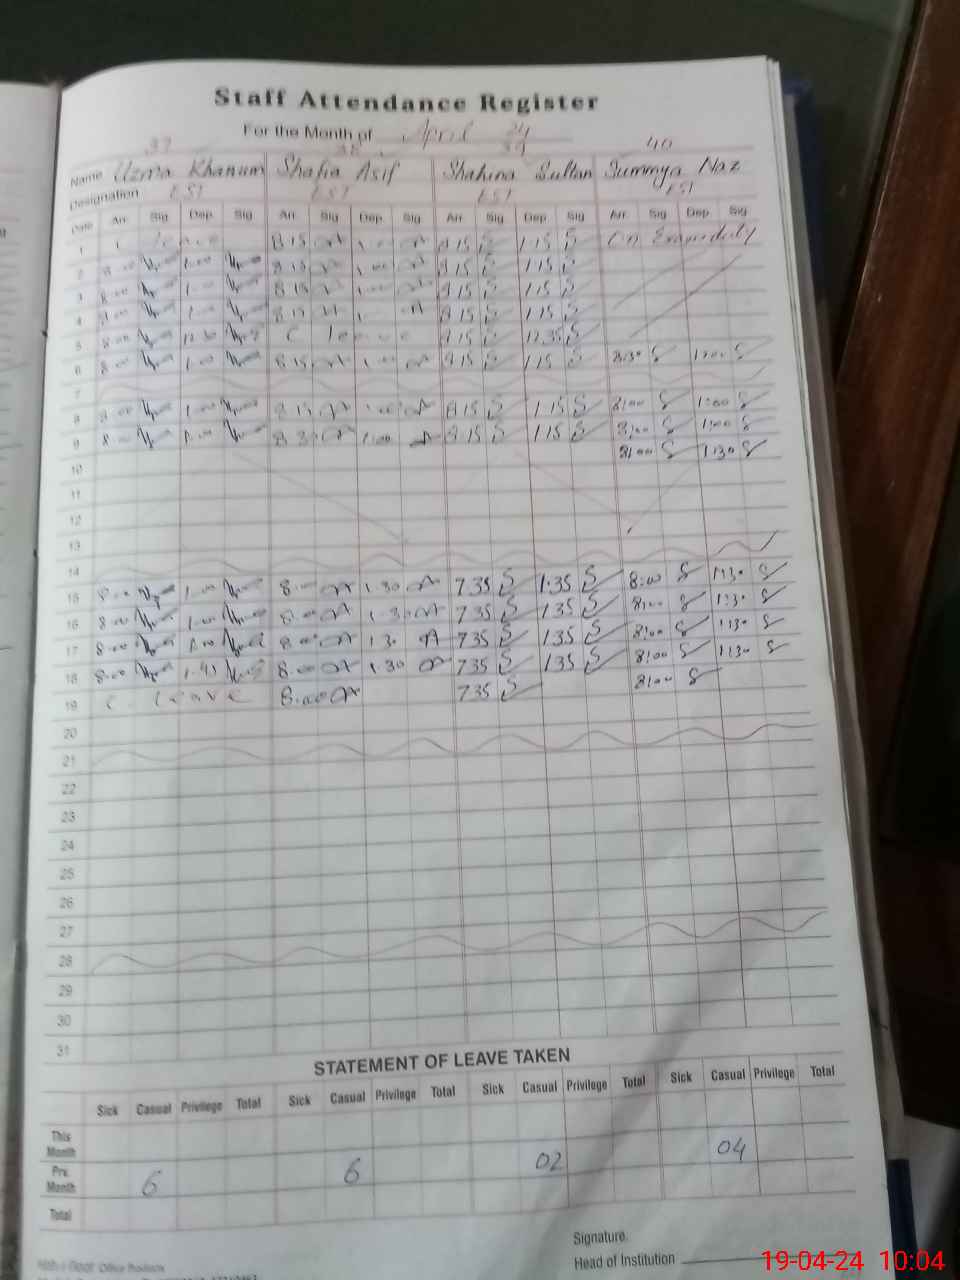 Staff Attendance Register
For the Month of April 24
37 38 39 40
Name Uzma Khanum Shafia Asif Shahina Sultan Summya Naz
Designation EST EST EST EST
Date Arr. Sig Dep. Sig Arr. Sig Dep. Sig Arr. Sig Dep. Sig Arr. Sig Dep. Sig
1 C Leave 8.15 1.00 8.15 S 1.15 S
2 8.00 1.00 8.15 1.00 8.15 S 1.15 S
3 8.00 1.00 8.15 1.00 8.15 S 1.15 S
4 8.00 1.00 8.15 1.00 8.15 S 1.15 S
5 8.00 12.30 C leave 8.15 S 12.35 S
6 8.00 1.00 8.15 1.00 8.15 S 1.15 S 8:30 S 1:00 S
7
8 8.00 1.00 8.15 1.00 8.15 S 1.15 S 8:00 S 1:00 S
9 8.00 1.00 1.00 8.15 S 1.15 S 8:00 S 1:00 S
10 8:00 S 1:30 S
11
12
13
14
15 8.00 1.00 8.00 1.30 7.35 S 1.35 S 8:00 S 1:30 S
16 8.00 1.00 8.00 1.30 7.35 S 1.35 S 8:00 S 1:30 S
17 8.00 1.00 8.00 1.30 7.35 S 1.35 S 8:00 S 1:30 S
18 8.00 8.00 1.30 7.35 S 1.35 S 8:00 S 1:30 S
19 C. Leave 8.00 7.35 S 8:00 S
20
21
22
23
24
25
26
27
28
29
30
31
STATEMENT OF LEAVE TAKEN
Sick Casual Privilege Total Sick Casual Privilege Total Sick Casual Privilege Total Sick Casual Privilege Total
This Month
Prv. Month 6 6 02 04
Total
Signature.
Head of Institution
Office Products
19-04-24 10:04